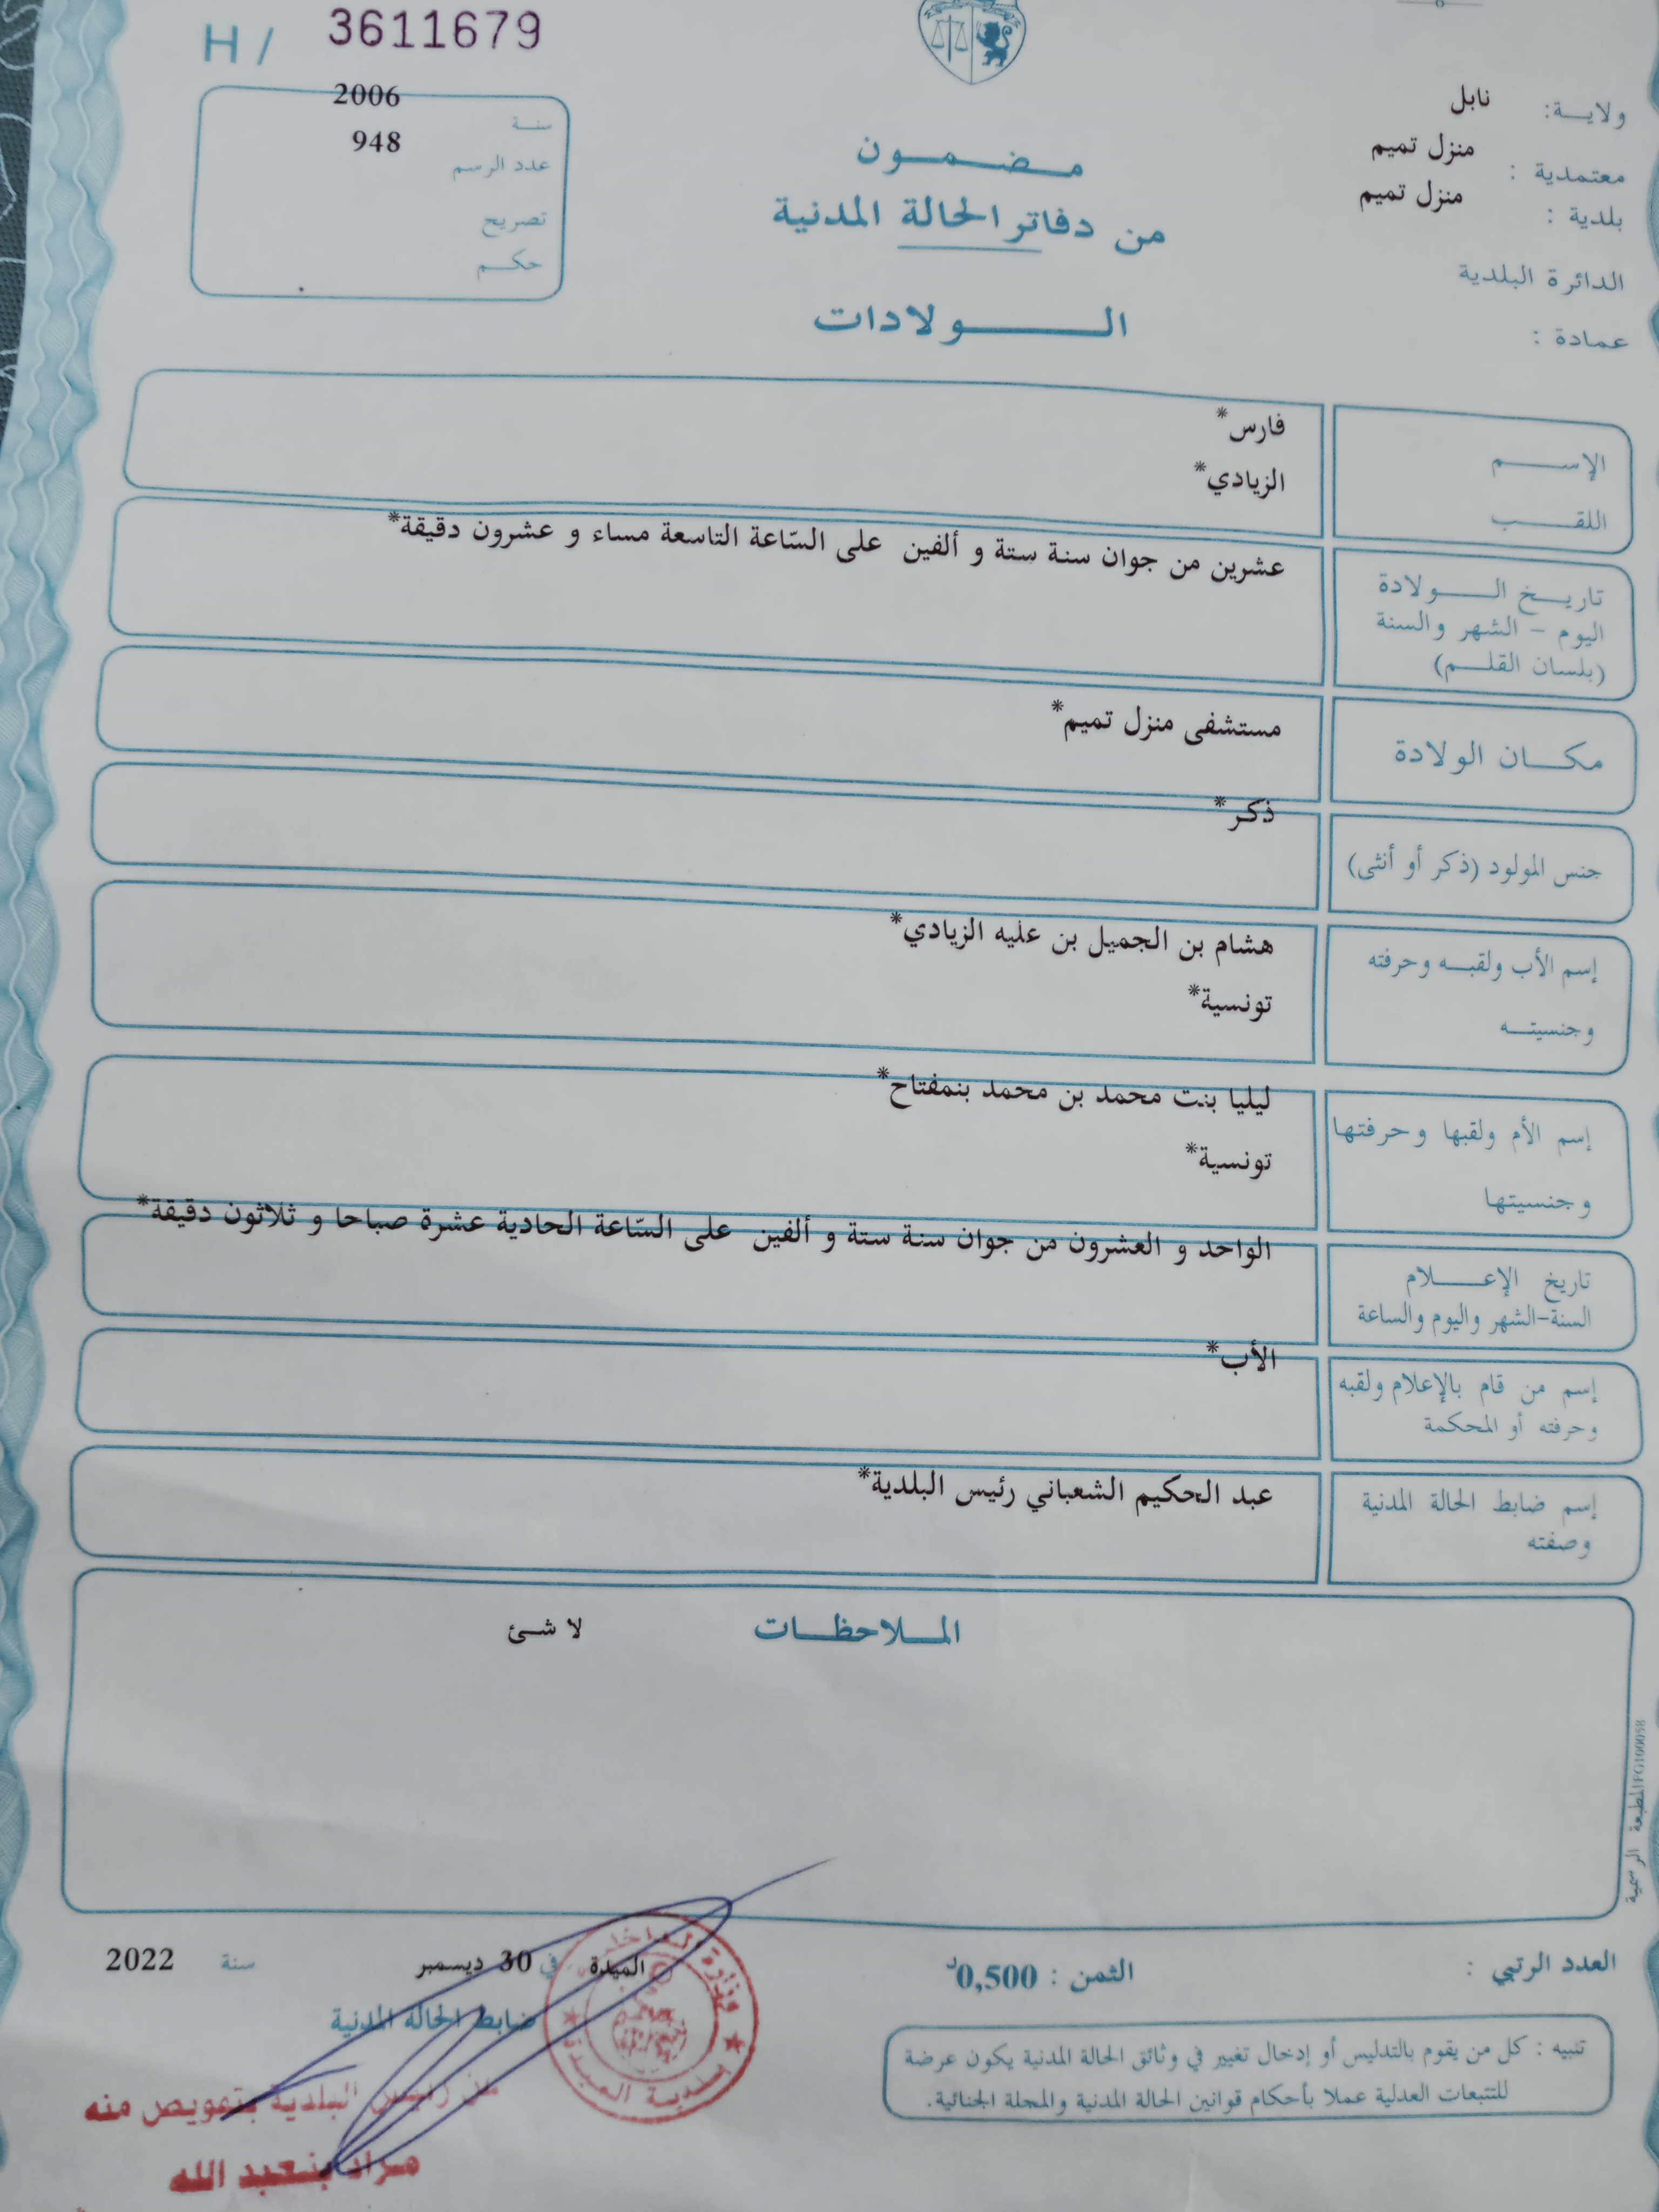 H / 3611679
ولاية: نابل
معتمدية : منزل تميم
بلدية : منزل تميم
الدائرة البلدية
عمادة :
مضمون
من دفاتر الحالة المدنية
الولادات
سنة 2006
عدد الرسم 948
تصريح
حكم
الإسم فارس*
اللقب الزيادي*
تاريخ الولادة
اليوم - الشهر والسنة
(بلسان القلم)
عشرين من جوان سنة ستة و ألفين على السّاعة التاسعة مساء و عشرون دقيقة*
مكان الولادة مستشفى منزل تميم*
جنس المولود (ذكر أو أنثى) ذكر*
إسم الأب ولقبه وحرفته هشام بن الجميل بن عليه الزيادي*
وجنسيته تونسية*
إسم الأم ولقبها وحرفتها ليليا بنت محمد بن محمد بنمفتاح*
وجنسيتها تونسية*
تاريخ الإعلام
السنة-الشهر واليوم والساعة
الواحد و العشرون من جوان سنة ستة و ألفين على السّاعة الحادية عشرة صباحا و ثلاثون دقيقة*
إسم من قام بالإعلام ولقبه
وحرفته أو المحكمة
الأب*
إسم ضابط الحالة المدنية
وصفته
عبد الحكيم الشعباني رئيس البلدية*
الملاحظات لا شئ
المطبعة الرسمية FG100058
العدد الرتبي :
الثمن : 0,500د
الميدة في 30 ديسمبر سنة 2022
ضابط الحالة المدنية
عن رئيس البلدية بتعويض منه
مراد بنعبد الله
بلدية الميدة
تنبيه : كل من يقوم بالتدليس أو إدخال تغيير في وثائق الحالة المدنية يكون عرضة
للتتبعات العدلية عملا بأحكام قوانين الحالة المدنية والمجلة الجنائية.